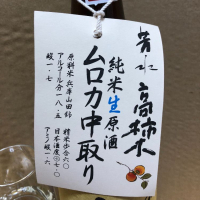 芳水
高柿木
純米生原酒
ムロカ中取り
原料米 兵庫山田錦
精米歩合六〇
アルコール分一八・五
日本酒度⊕七・〇
酸一・七
アミノ酸一・六